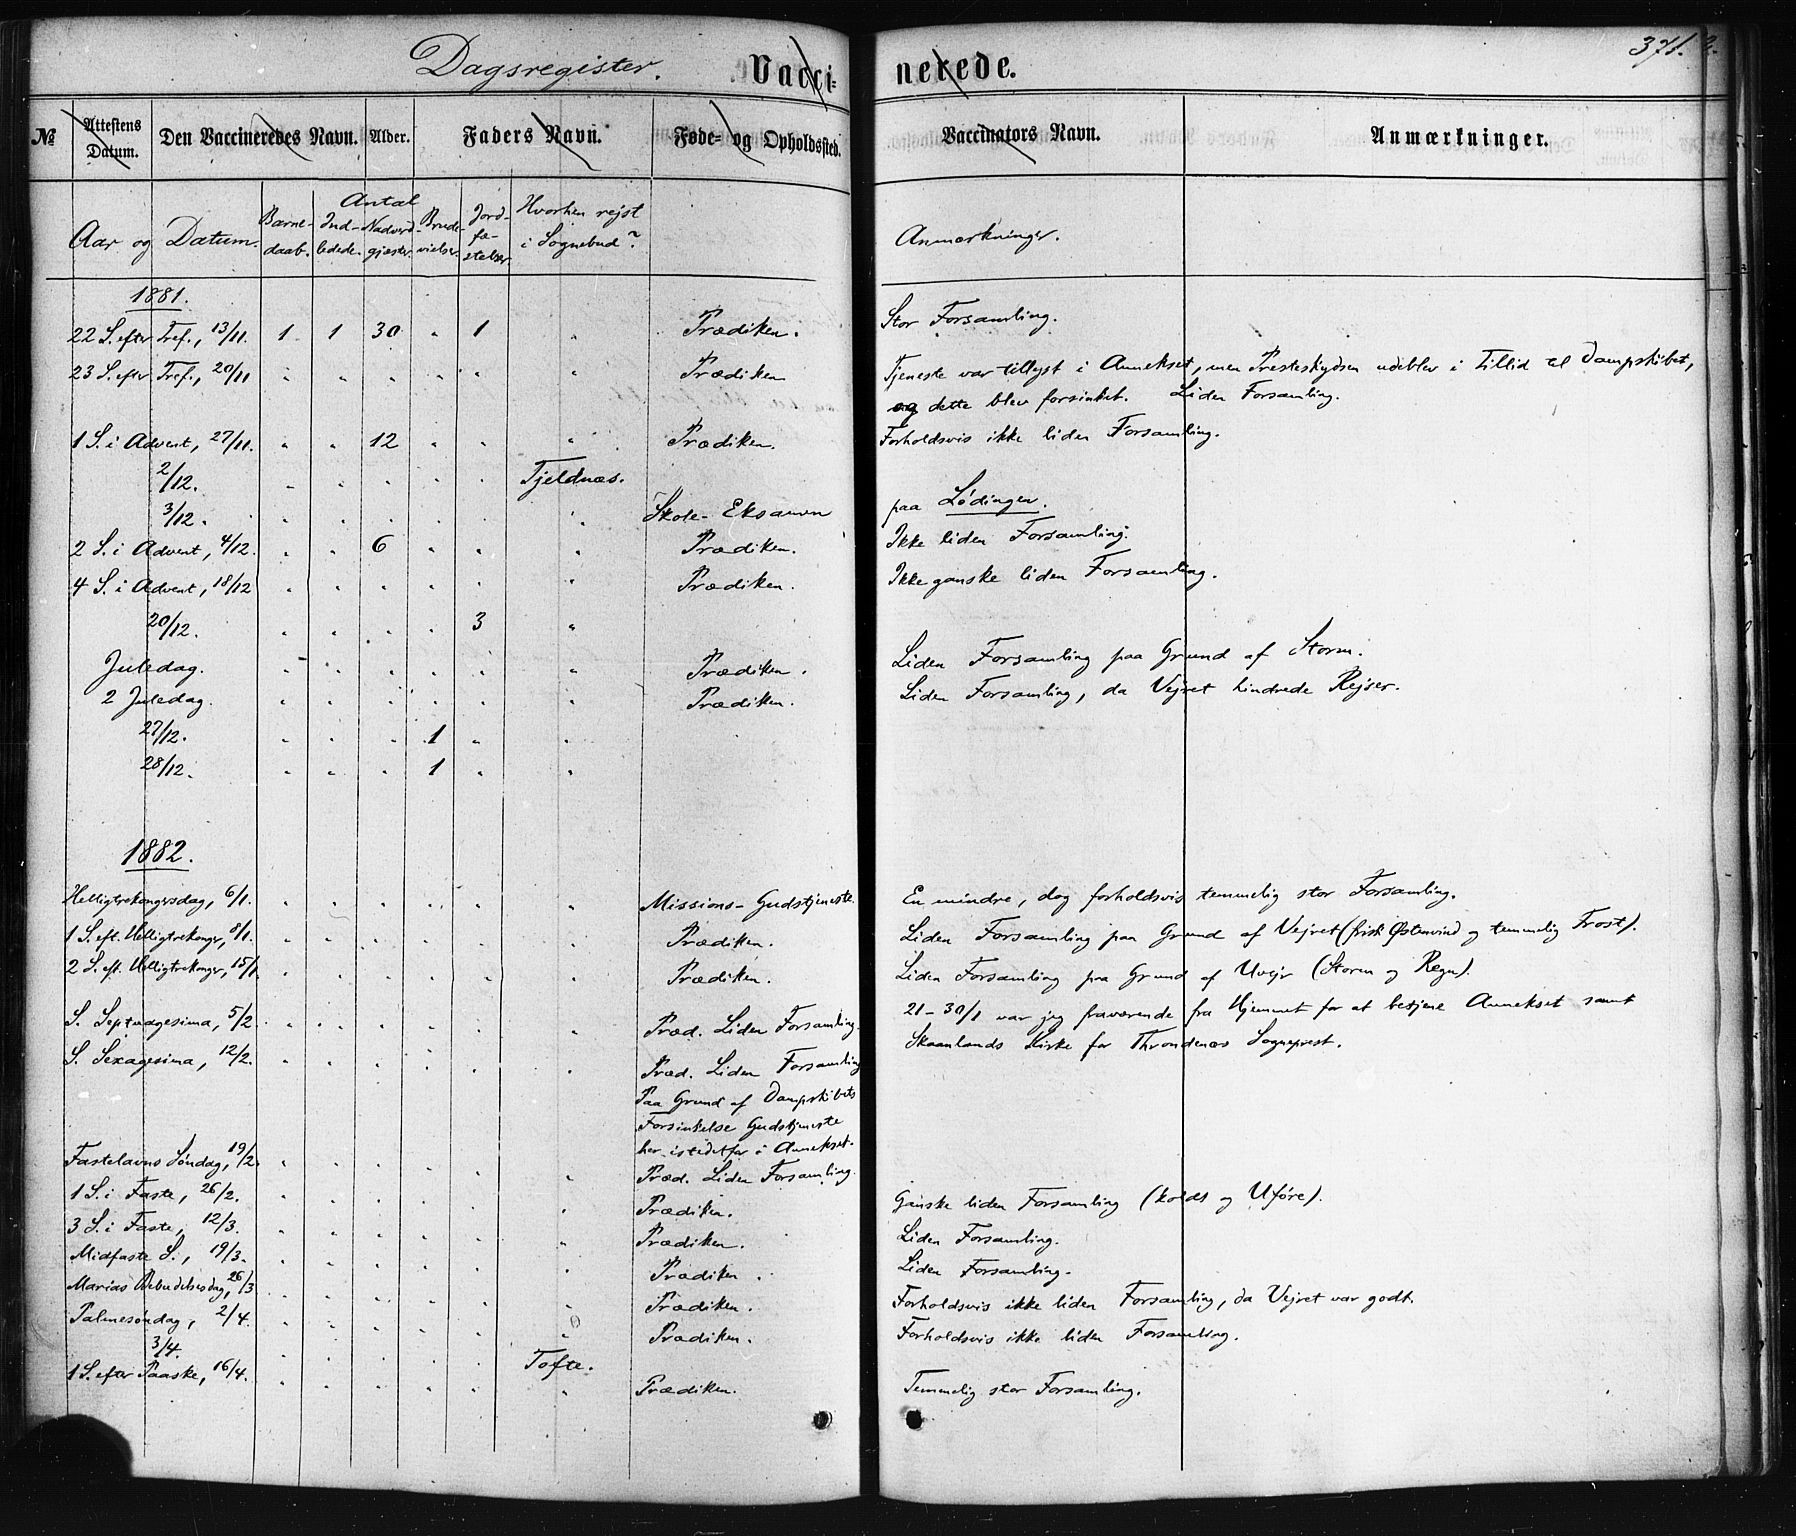 Dagsregister. Vaccinerede. 371.
№ Attestens Datum. Den Vaccineredes Navn. Alder. Faders Navn. Føde- og Opholdssted. Vaccinators Navn. Anmærkninger.
Aar og Datum. Barne-daab. Antal Ind-ledede. Nadverd-gjæster. Brude-vielser. Jord-fæ-stelser. Hvorhen rejst i Sognebud? Anmærkninger.
1881.
22 S. efter Tref., 13/11. 1 1 30 " 1 " Prædiken. Stor Forsamling.
23 S. efter Tref., 20/11 " " " " " " Prædiken Tjeneste var tillyst i Annekset, men Presteskydsen udeblev i Tillid til Dampskibet,
og dette blev forsinket. Liden Forsamling.
1 S. i Advent, 27/11. " " 12 " " " Prædiken. Forholdsvis ikke liden Forsamling.
2/12. " " " " " Tjeldnæs.
3/12. " " " " " " Skole-Eksamen paa Lødingen.
2 S. i Advent, 4/12. " " 6 " " " Prædiken. Ikke liden Forsamling.
4 S. i Advent, 18/12 " " " " " " Prædiken. Ikke ganske liden Forsamling.
20/12. " " " " 3 "
Juledag. " " " " " " Prædiken. Liden Forsamling paa Grund af Storm.
2 Juledag. " " " " " " Prædiken. Liden Forsamling, da Vejret hindrede Rejser.
27/12. " " " 1 " "
28/12. " " " 1 " "
1882.
Helligtrekongersdag, 6/1. " " " " " " Missions-Gudstjeneste. En mindre, dog forholdsvis temmelig stor Forsamling.
1 S. eft. Helligtrekonger, 8/1. " " " " " " Prædiken. Liden Forsamling paa Grund af Vejret (frisk Østenvind og temmelig Frost).
2 S. eft. Helligtrekonger, 15/1 " " " " " " Prædiken. Liden Forsamling paa Grund af Uvejr (Storm og Regn).
S. Septuagesima, 5/2. " " " " " " Præd. Liden Forsamling. 21-30/1 var jeg fraværende fra Hjemmet for at betjene Annekset samt
S. Sexagesima, 12/2. " " " " " " Præd. Liden Forsamling Skaanlands Kirke for Throndenæs Sogneprest.
Paa Grund af Dampskibets
Forsinkelse Gudstjeneste
her istedetfor i Annekset.
Fastelavns Søndag, 19/2. " " " " " " Præd. Liden Forsamling.
1 S. i Faste, 26/2. " " " " " " Prædiken. Ganske liden Forsamling (koldt og Uføre).
3 S. i Faste, 12/3. " " " " " " Prædiken. Liden Forsamling.
Midfaste S., 19/3. " " " " " " Prædiken. Liden Forsamling.
Marias Bebudelsesdag, 26/3 " " " " " " Prædiken. Forholdsvis ikke liden Forsamling, da Vejret var godt.
Palmesøndag, 2/4. " " " " " " Prædiken. Forholdsvis ikke liden Forsamling.
3/4. " " " " " Tofte.
1 S. efter Paaske, 16/4. " " " " " " Prædiken. Temmelig stor Forsamling.